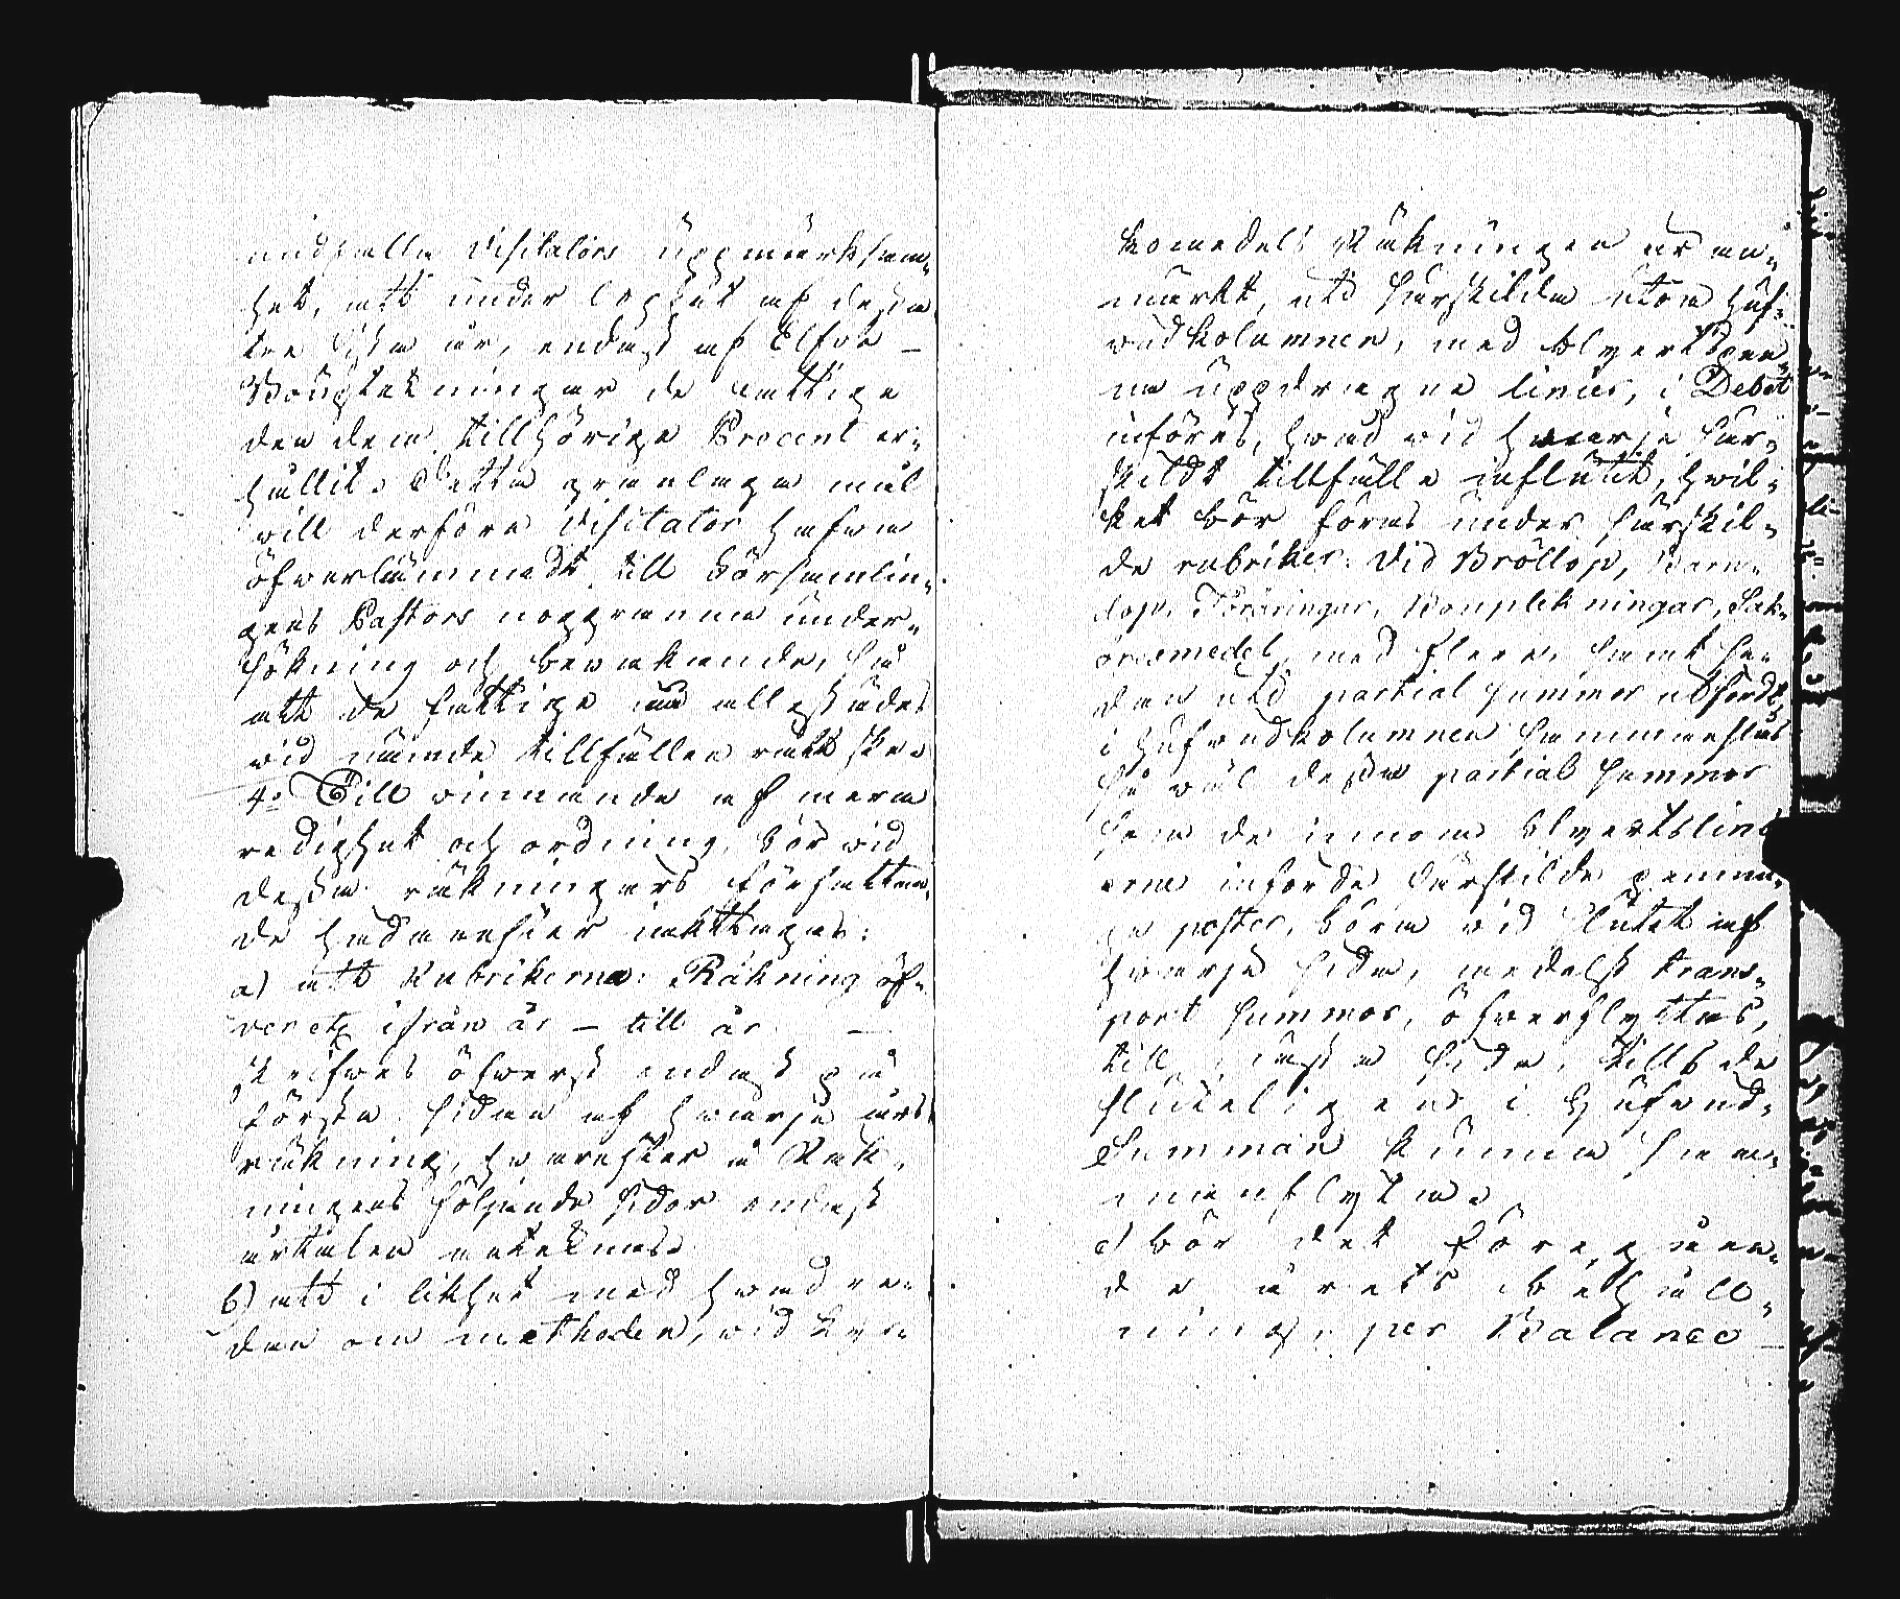 undfalla Visitators uppmärksam-
het, att under loppet af dessa
tre sista år, endast af Elfva —
Bouptekningar de fattige
den dem tillhörige Procent er-
hållit. Detta grannlaga mål
will derföre Visitator hafwa
öfwerlämnadt till Församlin-
gens Pastors noggranna under-
sökning och bewakande, så
att de fattige må allestädes
wid nämde tillfällen rätt ske.
4o Till winnande af mera
redighet och ordning, bör wid
dessa räkningars författan-
de hädanefter iakttagas:
a) att Rubrikerna: Räkning öf-
ver etc ifrån år — till år —
skrifwes öfwerst endast på
första sidan af hwarje års
räkning, hwarefter å Räk-
ningens följande sidor endast
årtalen utteknas.
b) att i likhet med hwad re-
dan om methoden, wid Kyr-
komedels Räkningen är an-
märkt, uti särskilda utom huf-
wudkolumnen, med blyertspen-
na uppdragne linier, i Debet
införes, hwad wid hwarje sär-
skildt tillfälle influtit, hwil-
ket bör föras under särskil-
de rubriker: Vid Bröllop, Barn-
dop, Föräringar, Bouptekningar, Sak-
öresmedel, med flere, samt se-
dan uti partial summor utfördt,
i hufwudkolumnen sammanslås
så wäl dessa partial summor
som de innom blyertslini-
erna införde särskilde pennin-
ge poster, böra wid slutet af
hwarje sida, medelst trans-
port summor, öfwerflyttas,
till nästa sida, tills de
sluteligen i Hufwud-
Summan kunna sam-
manflyta.
c) bör det föregåen-
de årets behåll-
ning, per Balance —